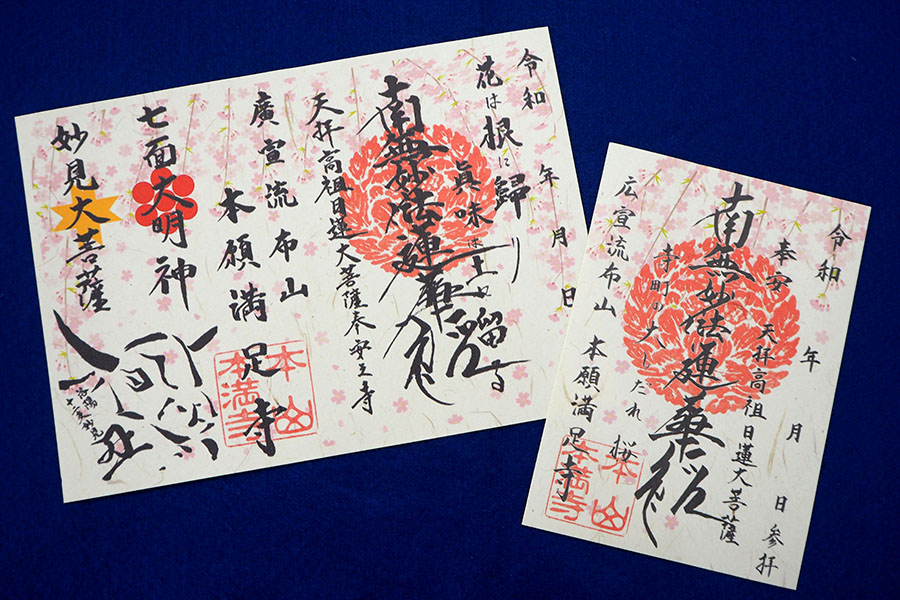 令和 年 月 日
花は根に歸り
眞味は土に留る
南無妙法蓮華経
天拝高祖日蓮大菩薩奉安主寺
廣宣流布山
本願満足寺
本山
本満寺
七面大明神
妙見大菩薩
洛陽
十二支妙見
令和 年 月 日参拝
奉安 天拝高祖日蓮大菩薩
南無妙法蓮華経
寺町の大しだれ桜
広宣流布山 本願満足寺
本山
本満寺